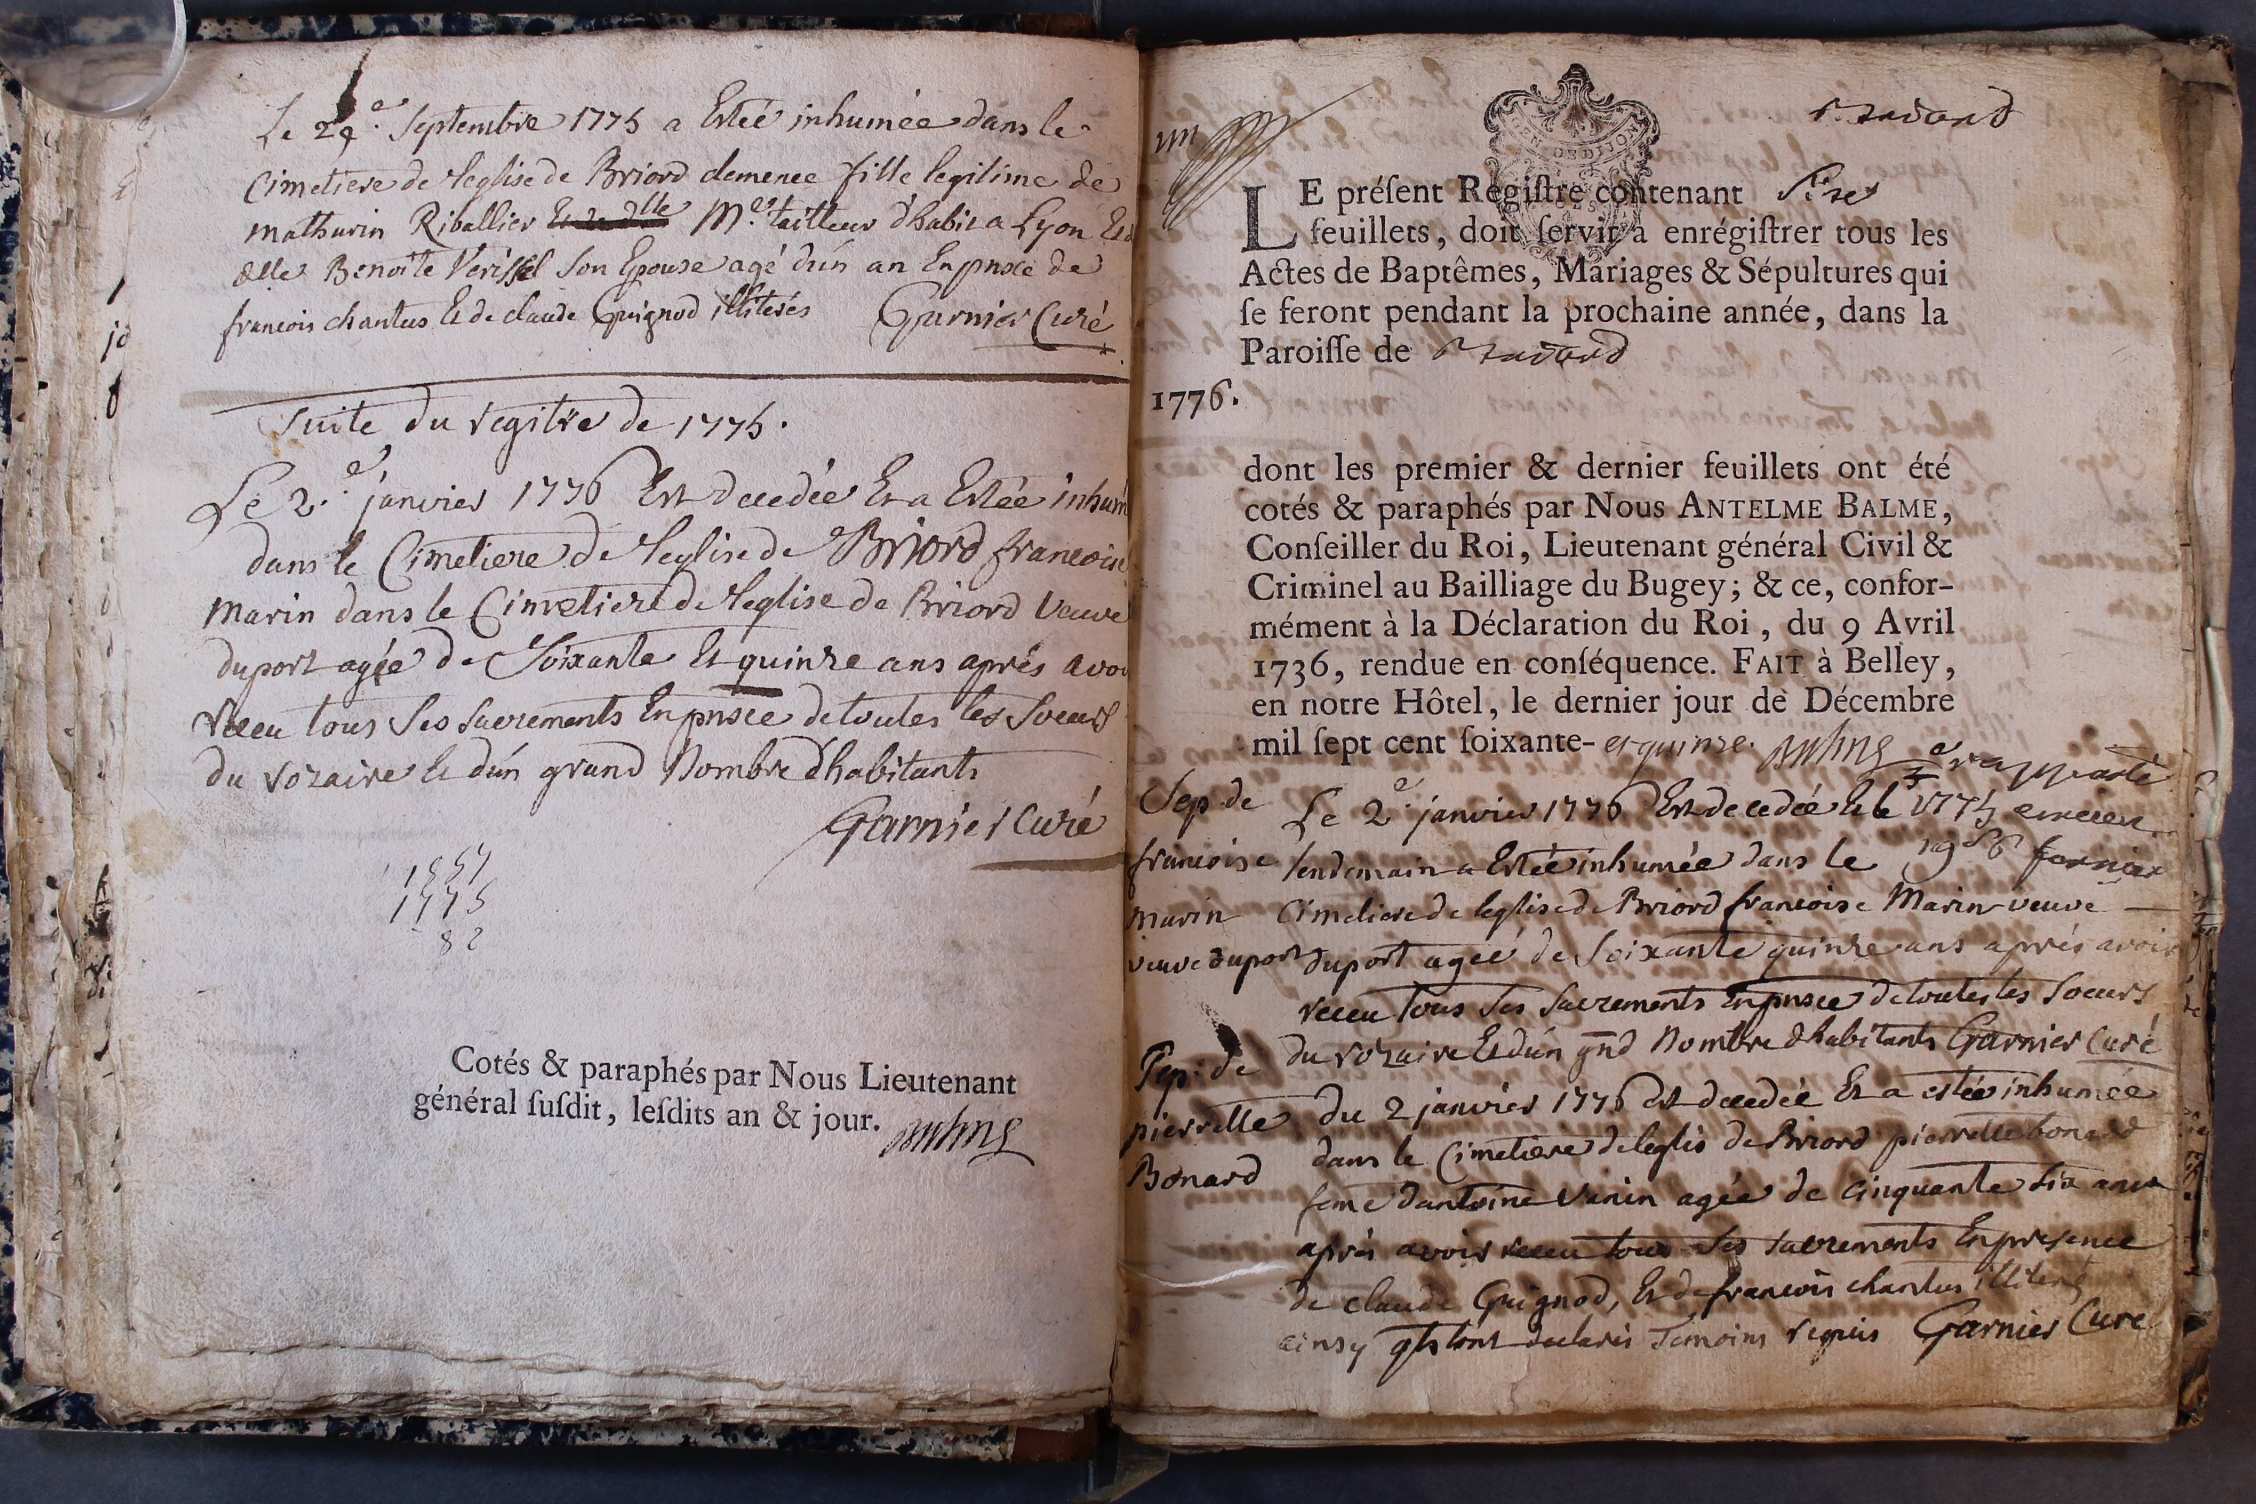 Le 29e. Septembre 1775 a Estée inhumée dans le
Cimetiere de leglise de Briord clemence fille legitime de
mathurin Riballier Me. tailleur d'habit a Lyon Et de
delle Benoite Verissel Son Epouse agé d'ún an En pnsce de
francois chantus Et de claude Guignod illiterés Garnier Curé
Suite du regitre de 1775.
Le 2.e janvier 1776 Est decedée Et a Estée inhumé
dans le Cimetiere de leglise de Briord francoise
Marin dans le Cimetiere de leglise de Briord Veuve
duport agée de Soixante Et quinze ans aprés avoir
receu tous Ses Sacrements En pnsce de toutes les Soeurs
du rozaire Et d'ún grand Nombre d'habitants
Garnier Curé
1775
82
Cotés & paraphés par Nous Lieutenant
général ſuſdit, leſdits an & jour.
un
GEN DE DIJON
LE préſent Regiſtre contenant
feuillets, doit ſervir à enrégiſtrer tous les
Actes de Baptêmes, Mariages & Sépultures qui
ſe feront pendant la prochaine année, dans la
Paroiſſe de
1776.
dont les premier & dernier feuillets ont été
cotés & paraphés par Nous ANTELME BALME,
Conſeiller du Roi, Lieutenant général Civil &
Criminel au Bailliage du Bugey; & ce, confor-
mément à la Déclaration du Roi, du 9 Avril
1736, rendue en conſéquence. FAIT à Belley,
en notre Hôtel, le dernier jour de Décembre
mil ſept cent ſoixante- et quinze.
Sep. de
francoise
marin
veuve duport
Le 2e. janvier 1776 Est decedée Et le
lendemain a Estée inhumée dans le
Cimetiere de leglise de Briord francoise Marin veuve
duport agée de Soixante quinze ans aprés avoir
receu tous Ses Sacrements En pnsce de toutes les Soeurs
du rozaire Et d'ún gnd Nombre d'habitants Garnier Curé
Sep. de
pierrette
Bonard
du 2 janvier 1776 est decedée Et a estée inhumée
dans le Cimetiere de leglis de Briord pierrette bonard
feme d'antoine Vanin agée de cinquante six ans
aprés avoir receu tous Ses Sacrements En presence
de claude Guignod, Et de francois chantus illiteré
ainsy qls l'ont declarés Temoins requis Garnier Curé